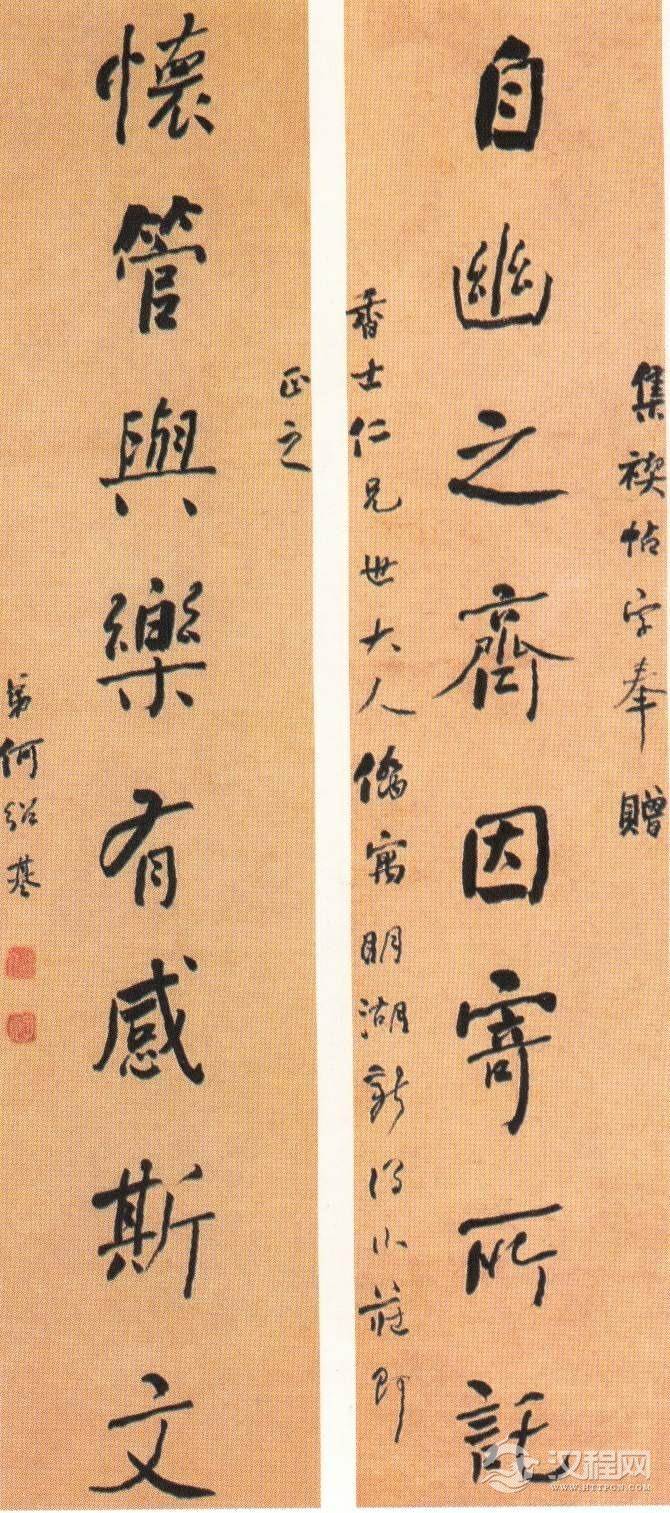 自幽之齋因寄所託
集禊帖字奉贈
香士仁兄世大人僑寓明湖新得小莊即
懷管與樂有感斯文
正之
弟何紹基
汉程网
WWW.HTTPCN.COM